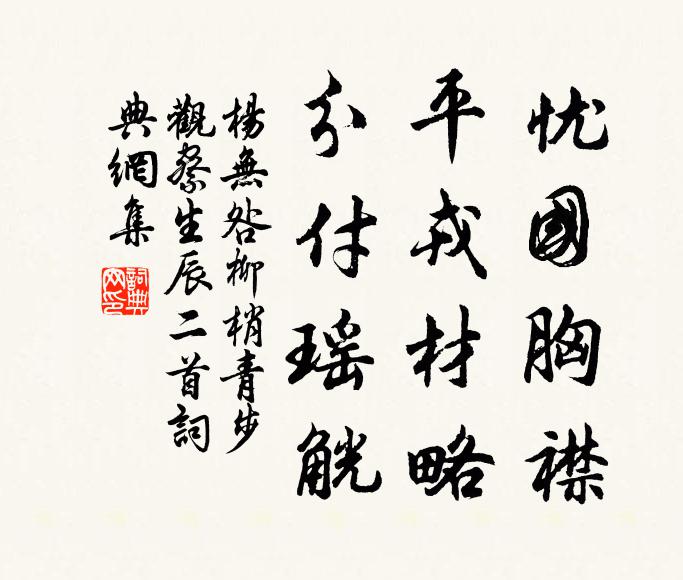 忧國胸襟
平戎材略
分付瑶觥
楊無咎柳梢青步
觀察生辰二首詞
典網集
詞典网印